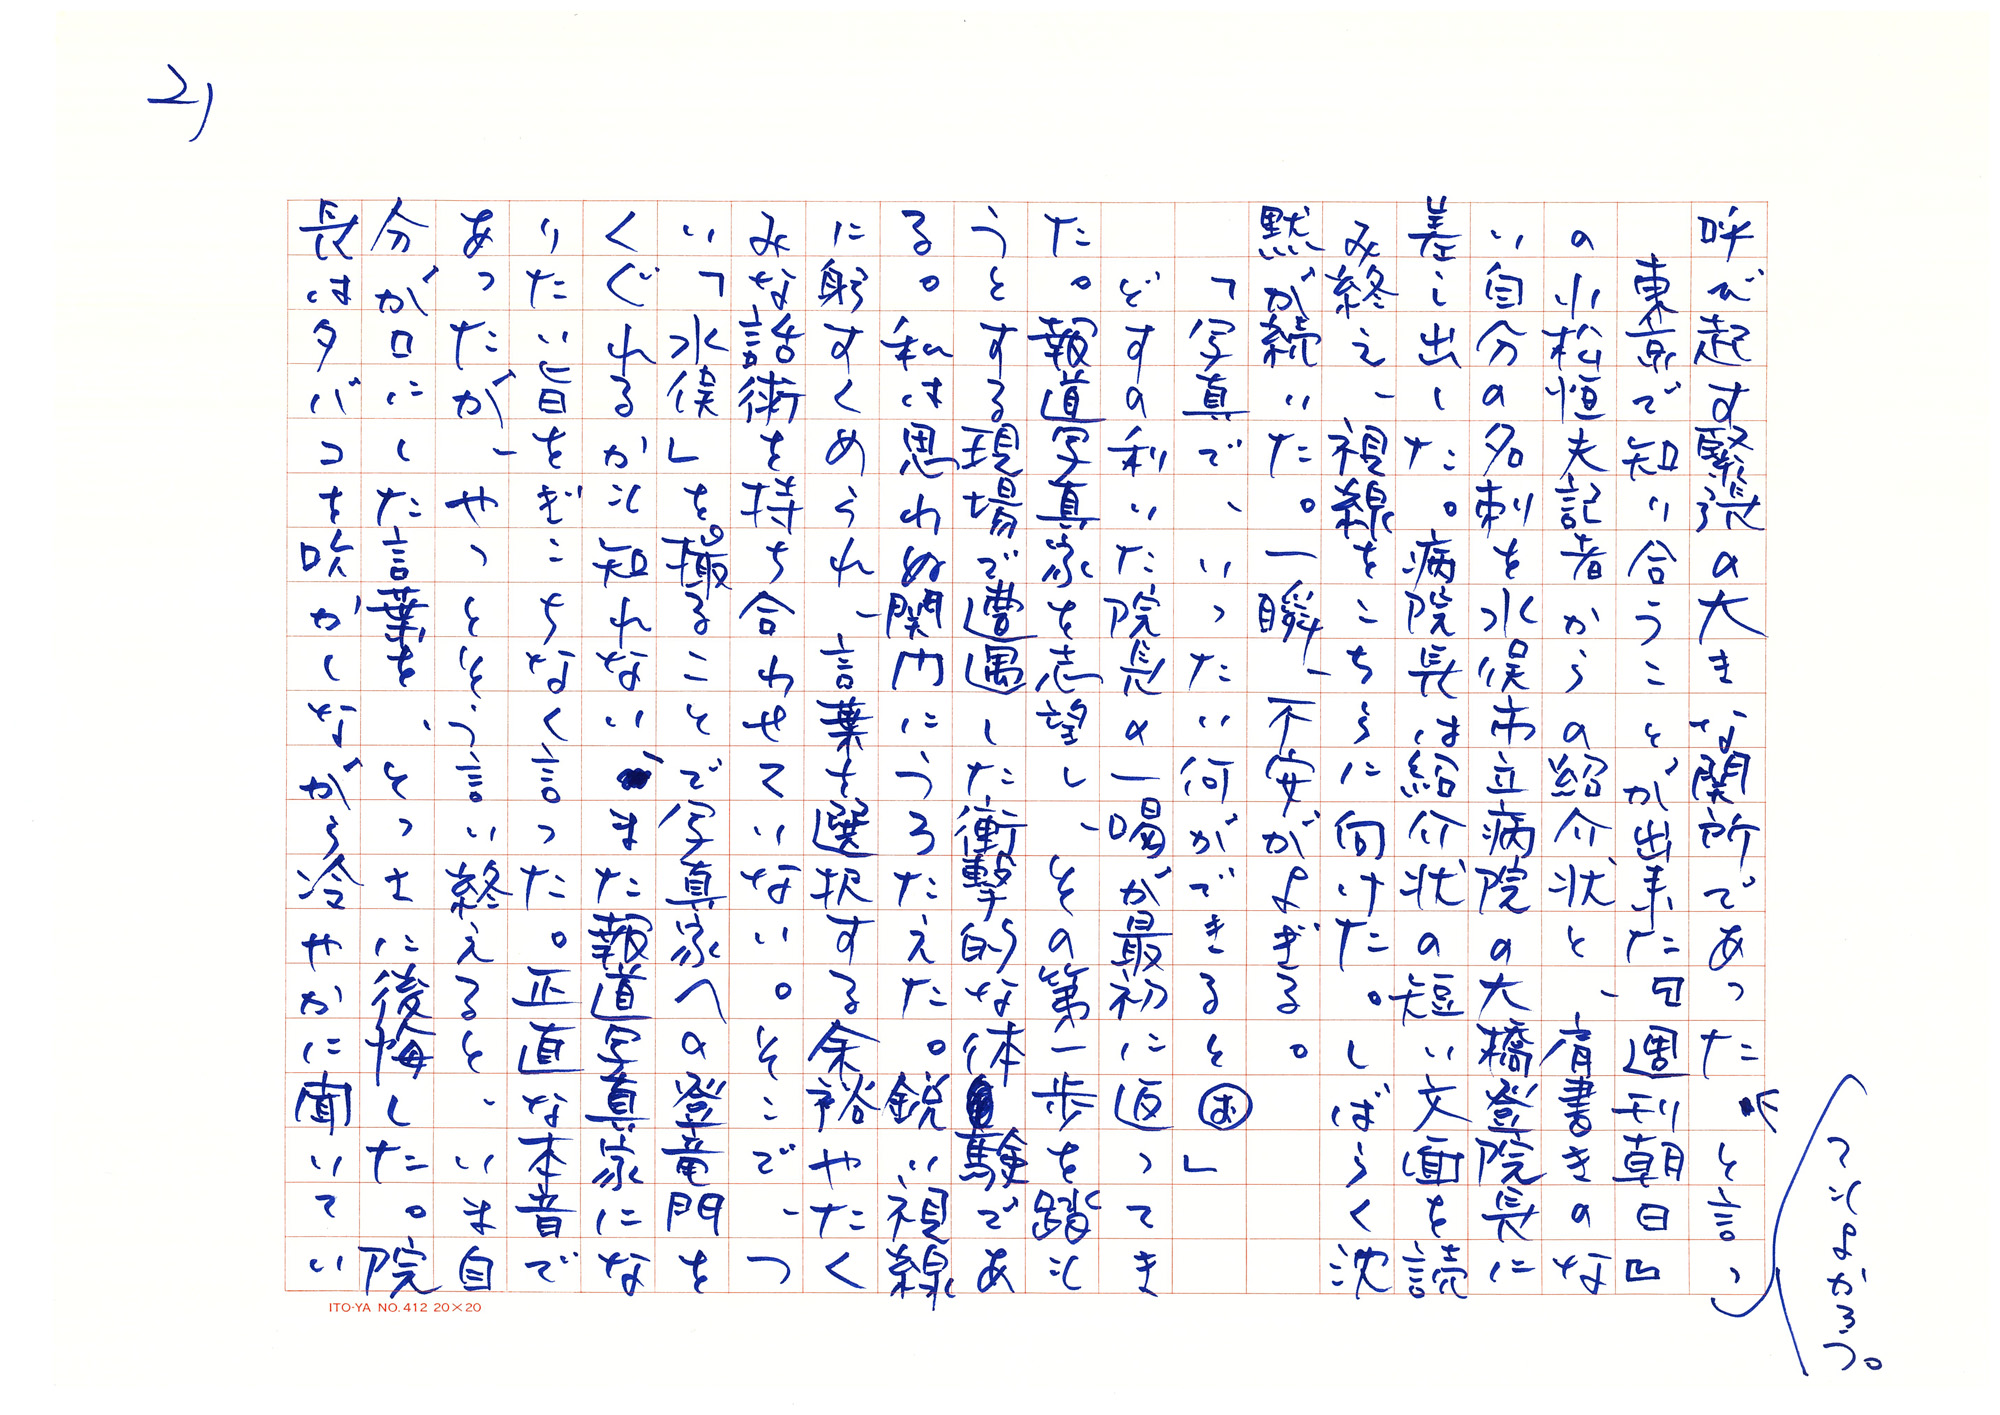 2)
呼び起す緊張の大きな関所であったと言っ
てもよかろう。
東京で知り合うことが出来た『週刊朝日』
の小松恒夫記者からの紹介状と、肩書きのな
い自分の名刺を水俣市立病院の大橋登院長に
差し出した。病院長は紹介状の短い文面を読
み終え、視線をこちらに向けた。しばらく沈
黙が続いた。一瞬、不安がよぎる。
「写真で、いったい何ができると㋔」
どすの利いた院長の一喝が最初に返ってき
た。報道写真家を志望し、その第一歩を踏も
うとする現場で遭遇した衝撃的な体験であ
る。私は思わぬ関門にうろたえた。鋭い視線
に躬すくめられ、言葉を選択する余裕やたく
みな話術を持ち合わせていない。そこで、つ
い「水俣」を撮ることで写真家への登竜門を
くぐれるかも知れない、また報道写真家にな
りたい旨をぎこちなく言った。正直な本音で
あったが、やっとそう言い終えると、いま自
分が口にした言葉を、とっさに後悔した。院
長はタバコを吹かしながら冷やかに聞いてい
ITO-YA NO.412 20×20